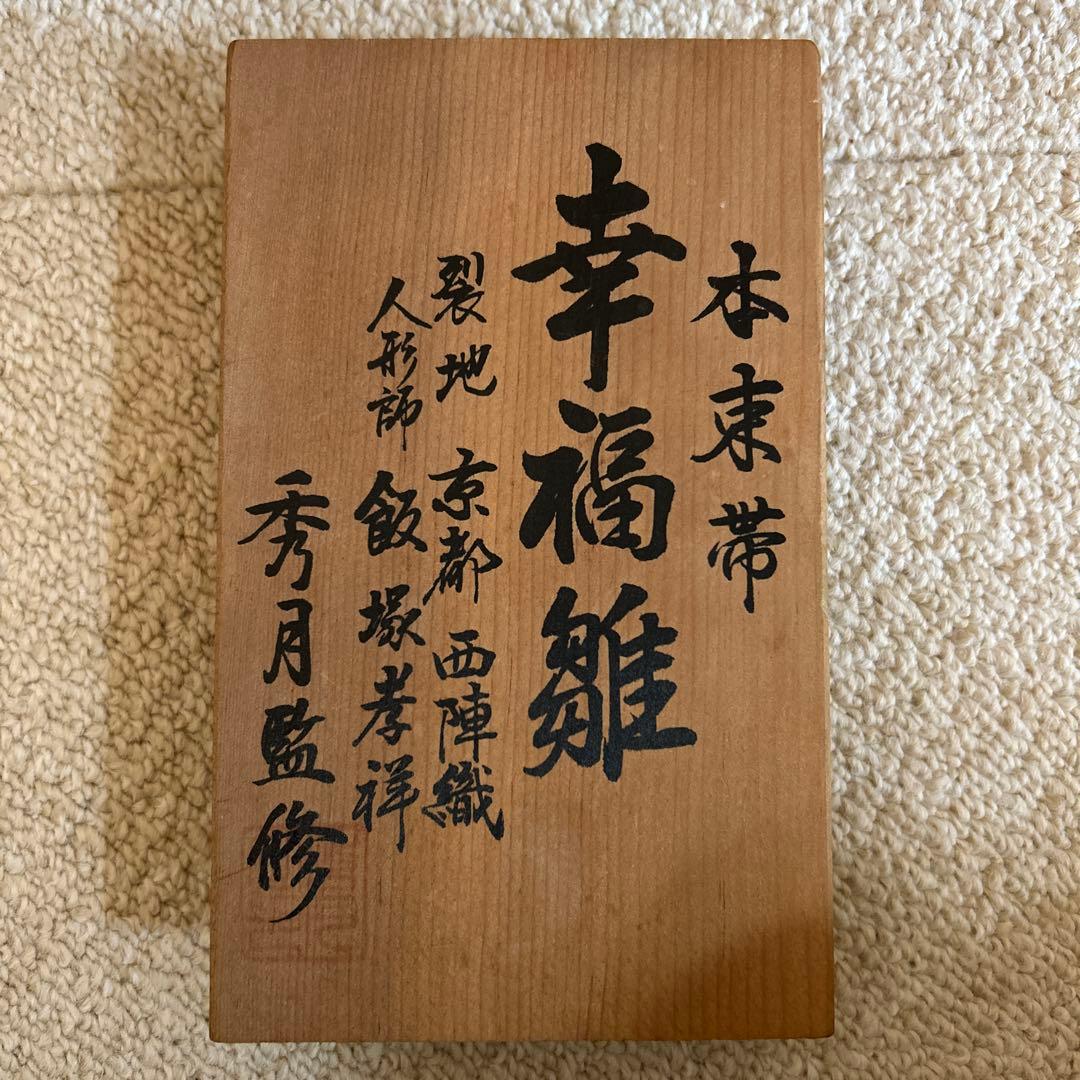 本束帯
幸福雛
裂地 京都 西陣織
人形師 飯塚孝祥
秀月監修